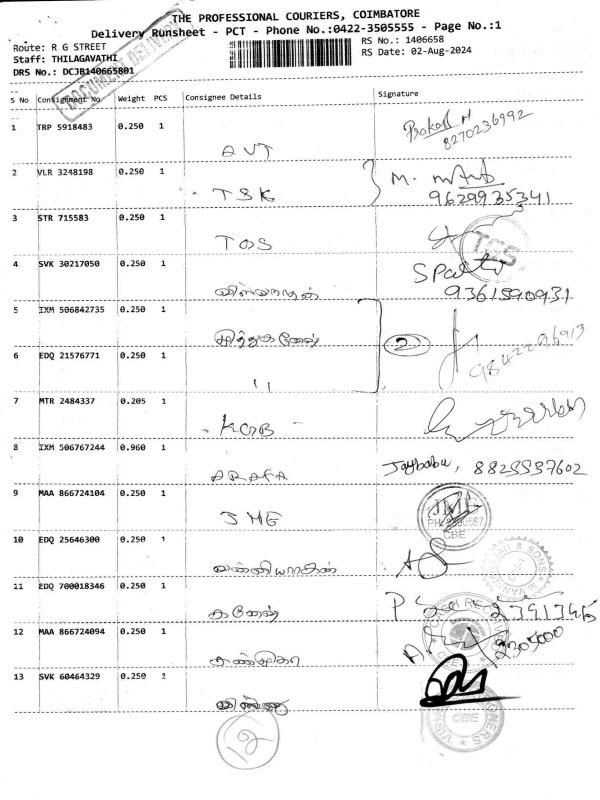 THE PROFESSIONAL COURIERS, COIMBATORE
Delivery Runsheet - PCT - Phone No.:0422-3505555 - Page No.:1
Route: R G STREET
RS No.: 1406658
Staff: THILAGAVATHI
RS Date: 02-Aug-2024
DRS No.: DCJB140665801
DOCUMENT DELIVERY
S No Consignment No Weight PCS Consignee Details Signature
1 TRP 5918483 0.250 1 AVT Prakash M
8270236992
2 VLR 3248198 0.250 1 TSK M.
9629935341
3 STR 715583 0.250 1 TOS TGS
4 SVK 30217050 0.250 1 விஸ்வநாதன்
9361590931
5 IXM 506842735 0.250 1 முத்துகணேஷ் 2
9842296913
6 EDQ 21576771 0.250 1 "
7 MTR 2484337 0.205 1 KGB
8 IXM 506767244 0.960 1 ARAFA Jaybabu, 8825557602
9 MAA 866724104 0.250 1 JMG JMG
CBE
10 EDQ 25646300 0.250 1 & SONS
11 EDQ 700018346 0.250 1 கணேஷ் P 2391345
12 MAA 866724094 0.250 1 2305000
13 SVK 60464329 0.250 1
CBE
12